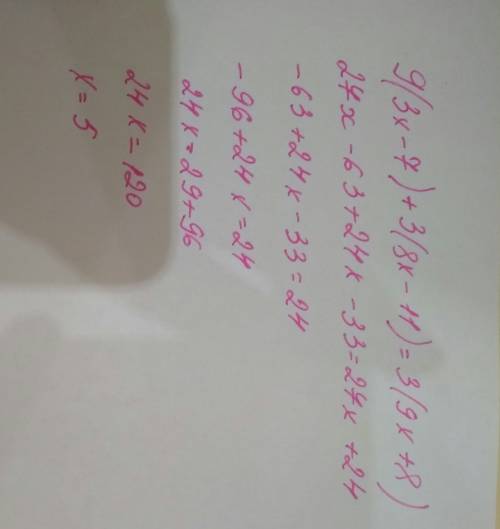 9(3x-7)+3(8x-11)=3(9x+8)
27x-63+24x-33=27x+24
-63+24x-33=24
-96+24x=24
24x=29+96
24x=120
x=5